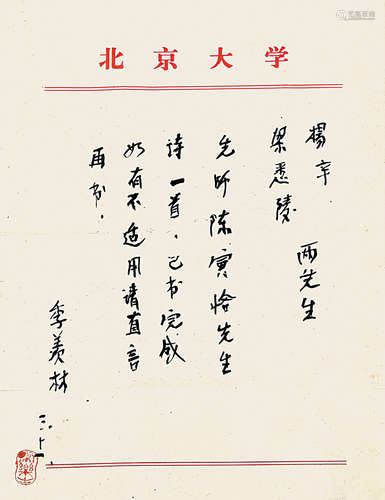 北京大学
杨辛
梁惠陵 两先生
先师陈寅恪先生
诗一首，已书完成
如有不适用请直言
再书．
季羡林
三．十一．